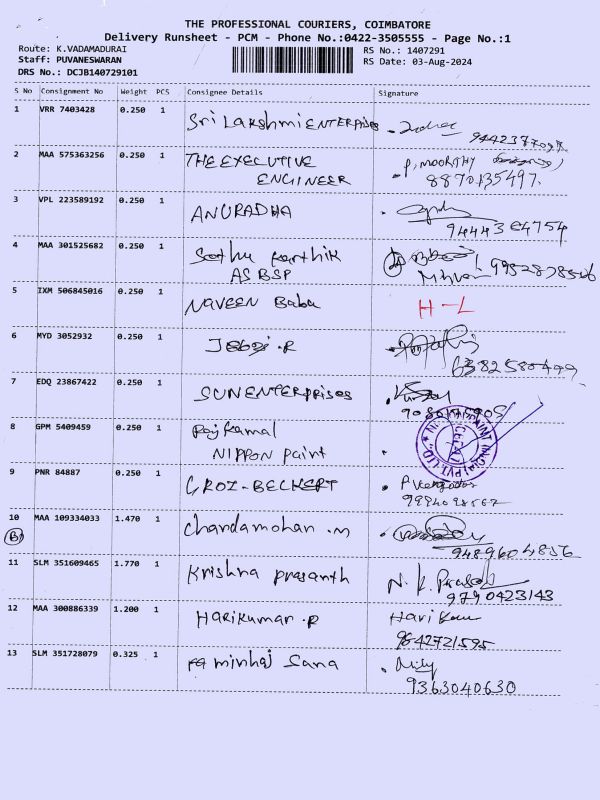 THE PROFESSIONAL COURIERS, COIMBATORE
Delivery Runsheet - PCM - Phone No.:0422-3505555 - Page No.:1
Route: K.VADAMADURAI
RS No.: 1407291
Staff: PUVANESWARAN
RS Date: 03-Aug-2024
DRS No.: DCJB140729101
S No Consignment No Weight PCS Consignee Details Signature
1 VRR 7403428 0.250 1 Sri Lakshmi ENTERPRISES
2 MAA 575363256 0.250 1 THE EXECUTIVE P. MOORTHY
ENGINEER 8870135497.
3 VPL 223589192 0.250 1 ANURADHA
4 MAA 301525682 0.250 1 Sathu Karthik
AS BSP
5 IXM 506845016 0.250 1 NAVEEN Babu H-L
6 MYD 3052932 0.250 1
7 EDQ 23867422 0.250 1 SUN ENTERPRISES
8 GPM 5409459 0.250 1 Raj Kamal
NIPPON Paint
9 PNR 84887 0.250 1 GROZ-BECKERT
10 MAA 109334033 1.470 1 Chandamohan .M
(B) 9489604856
11 SLM 351609465 1.770 1 Krishna prasanth N.K. Prasath
9790423143
12 MAA 300886339 1.200 1 HARIKUMAR .R Hari Kum
9842721595
13 SLM 351728079 0.325 1 minhaj Sana
9363040630